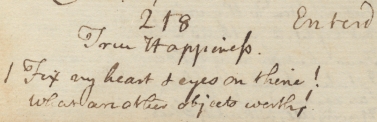 218 Enterd
True Happiness.
1 Fix my heart & eyes on thine!
What are other objects worth?